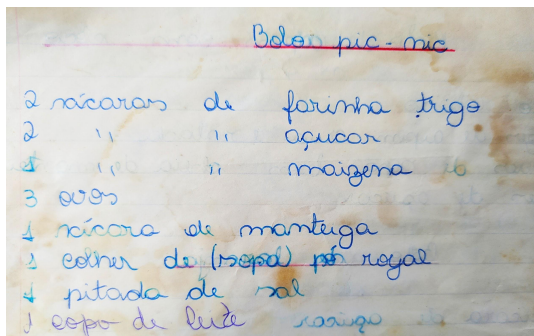 Bolos pic-nic
2 xícaras de farinha trigo
2 '' '' açucar
1 '' '' maizena
3 ovos
1 xícara de manteiga
1 colher de (sopa) pó royal
1 pitada de sal
1 copo de leite